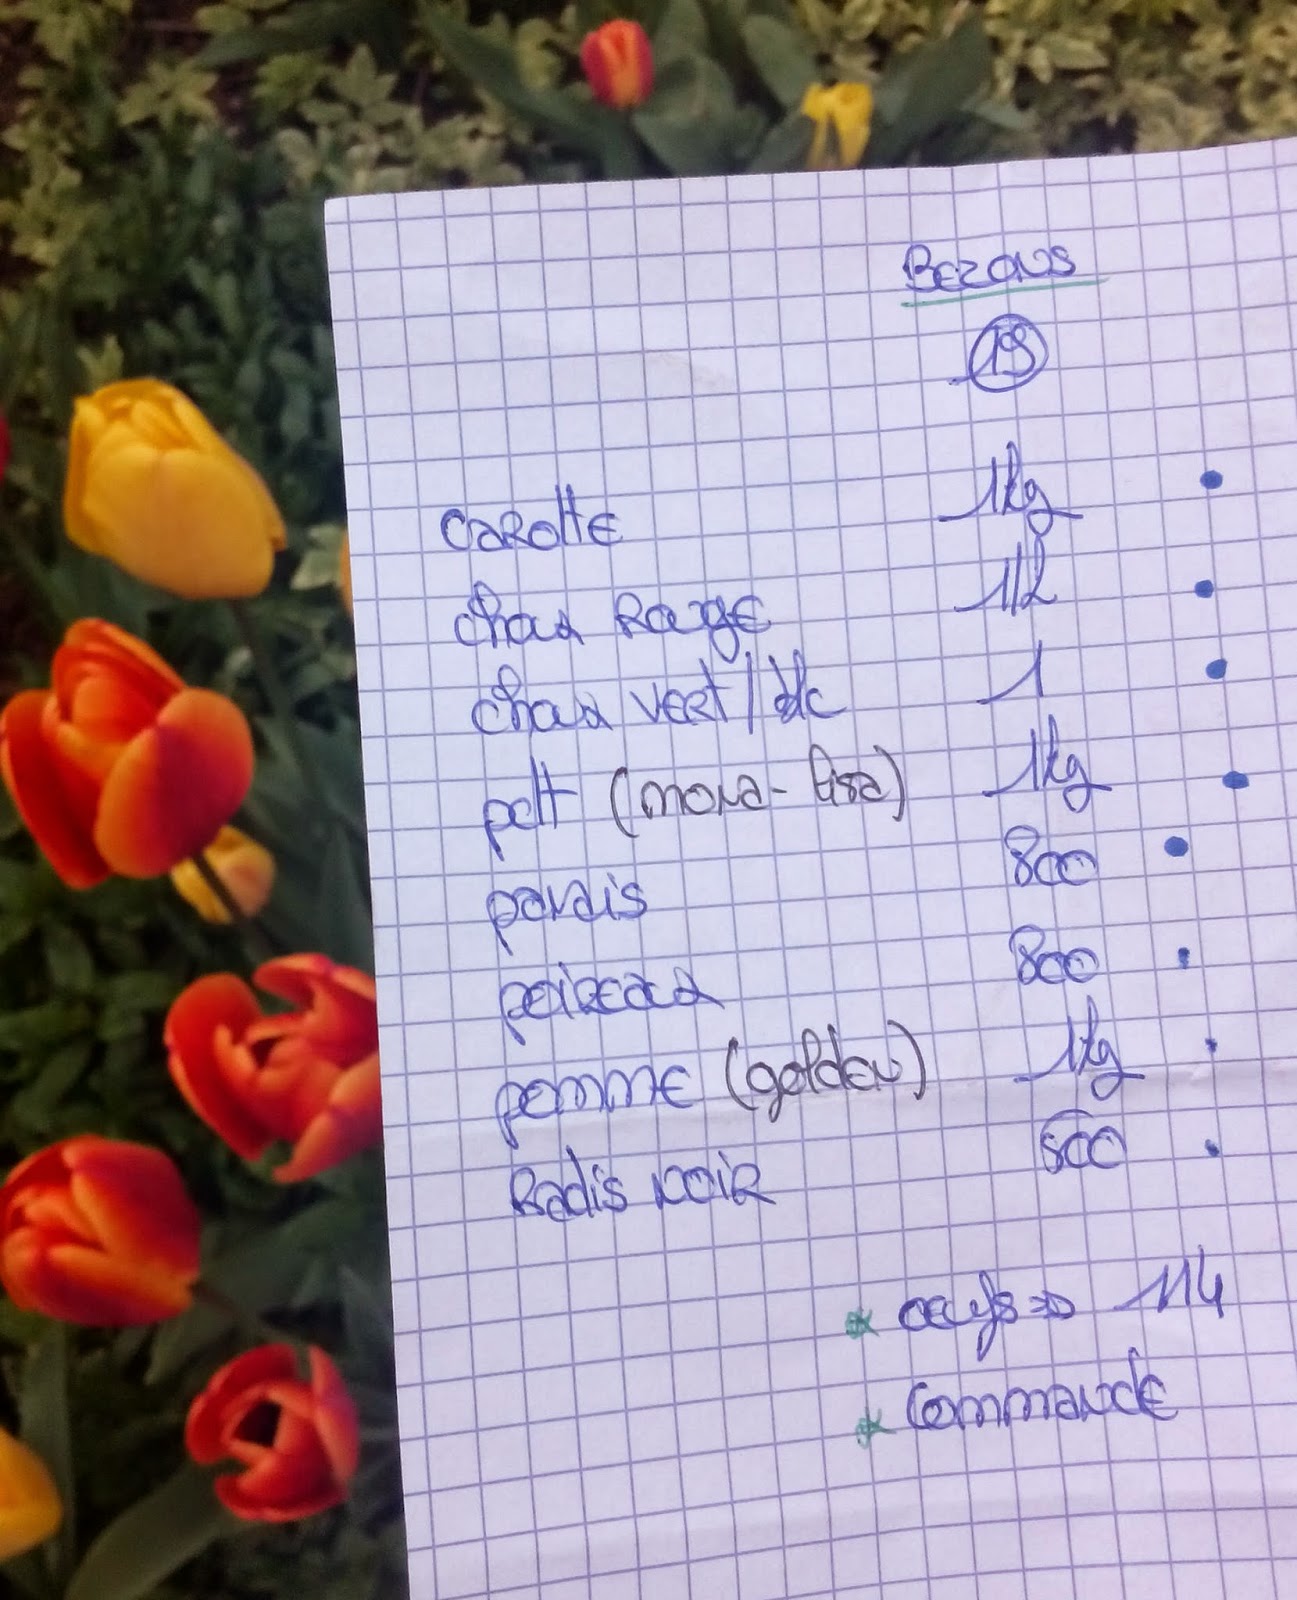 Bezons
19
carotte 1kg
choux Rouge 1/2
choux vert/blc 1
pdt (mona-lisa) 1kg
panais 800
poireaux 800
pomme (golden) 1kg
Radis noir 500
* oeufs => 114
* Commande